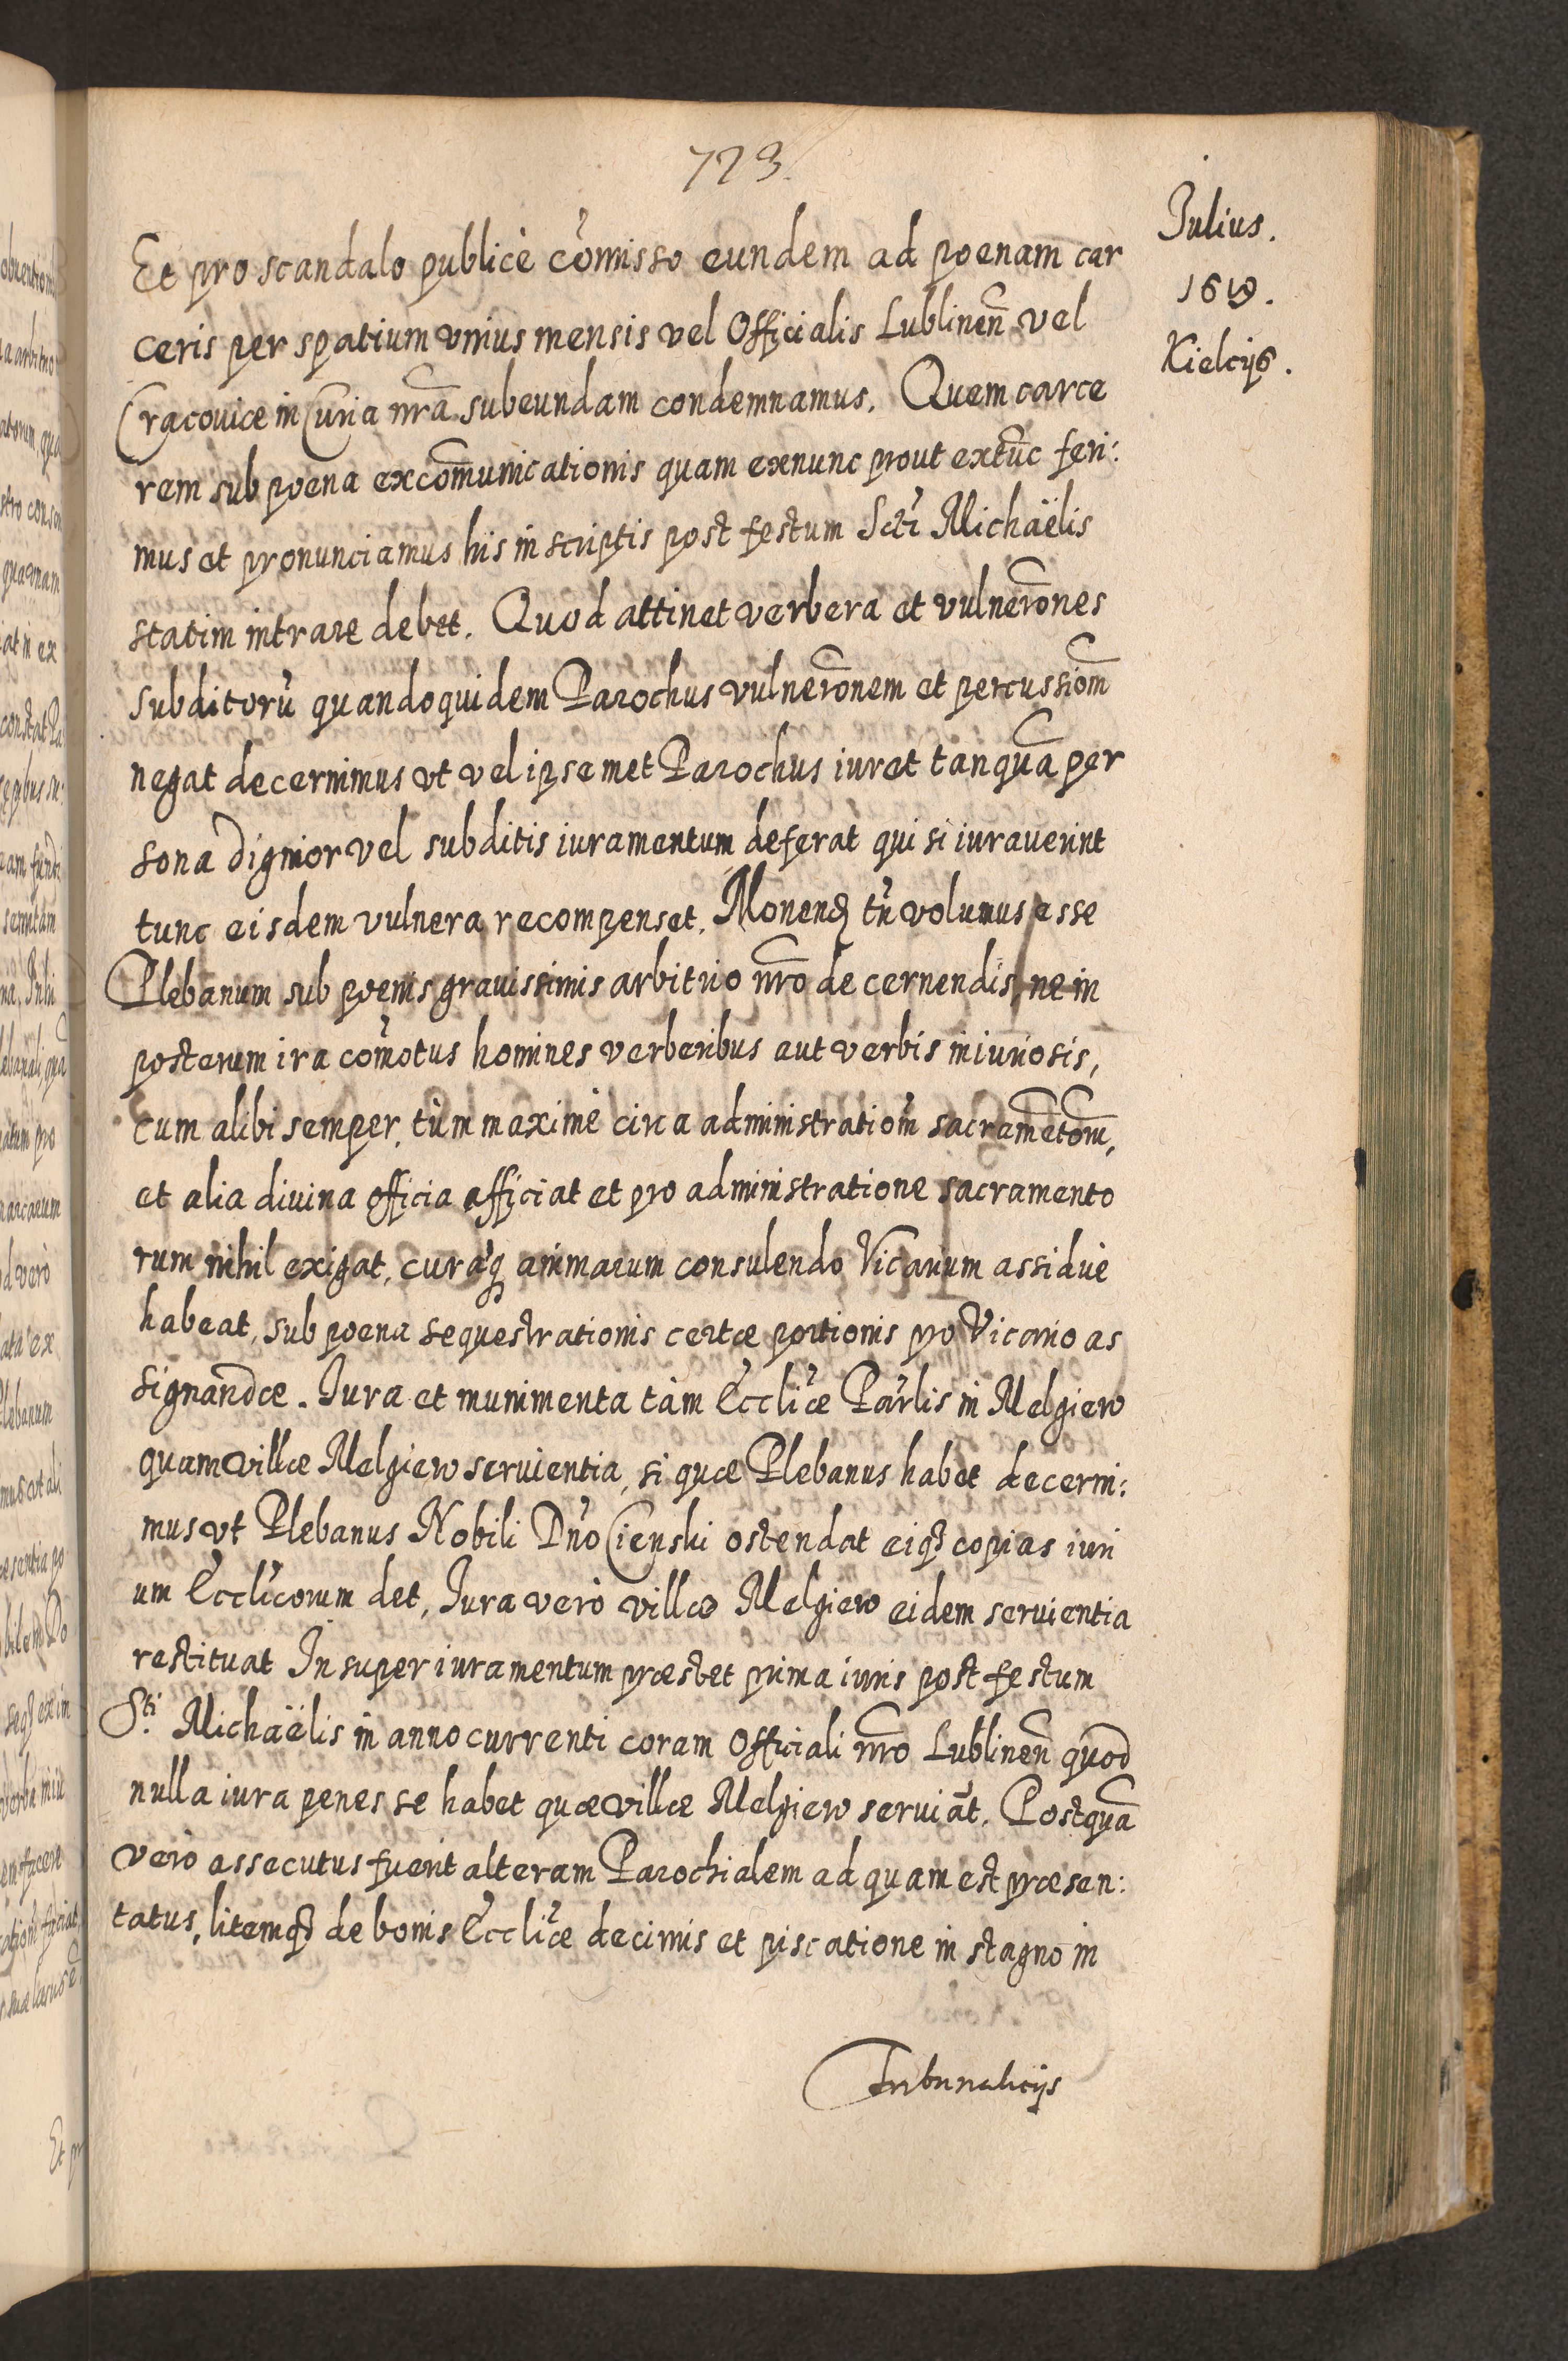 723.
Iulius.
1619.
Kielcijs.
Et pro scandalo publicè com̃isso eundem ad poenam car
ceris per spatium vnius mensis vel Officialis Lublineñ vel
Cracoviæ in Curia nr̃a subeundam condemnamus. Quem carce
rem sub poena excom̃unicationis quam exnunc prout extũc feri:
mus et pronunciamus his in scriptis post festum Scti Michaëlis
statim intrare debet. Quod attinet verbera et vulner̃ones
subditorũ quandoquidem Parochus vulner̃onem et percussiom̃
negat decernimus vt vel ipsemet Parochus iuret tanquã per
sona dignior vel subditis iuramentum deferat qui si iurauerint
tunc eisdem vulnera recompenset. Monenḍ tñ volumus esse
Plebanum sub poenis grauissimis arbitrio nr̃o decernendis, ne in
posterum ira com̃otus homines verberibus aut verbis iniuriosis,
cum alibi semper, tùm maximè circa administratiom̃ sacramẽtorũ,
et alia diuina officia afficiat et pro administratione sacramento
rum nihil exigat, curaq́ȝ animarum consulendo Vicarium assiduè
habeat, sub poena sequestrationis certæ portionis pro Vicario as
signandæ. Iura et munimenta tàm Eccliæ Parlis in Melgiew
quam villæ Melgiew seruientia, si quæ Plebanus habet decerni:
mus vt Plebanus Nobili Dño Cienski ostendat eiqȝ copias iuri
um Ecclicorum det, Iura verò villæ Melgiew eidem seruientia
restituat Insuper iuramentum præstet prima iuris post festum
Sti Michaëlis in anno currenti coram Officiali nr̃o Lublineñ quod
nulla iura penes se habet quæ villæ Melgiew seruiãt. Postquã
verò assecutus fuerit alteram Parochialem ad quam est præsen:
tatus, litemqȝ de bonis Eccliæ decimis et piscatione in stagno in
Tribunalicijs